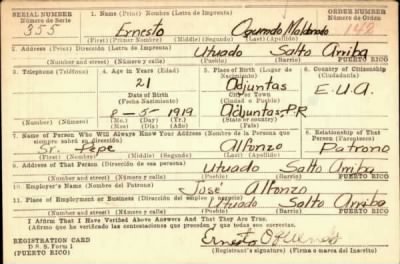 SERIAL NUMBER 1. Name (Print) Nombre (Letra de Imprenta) ORDER NUMBER
Número de Serie Número de Orden
355 Ernesto Maldonado 148
(First) (Primer Nombre) (Middle) (Segundo) (Last) (Apellido)
2. Address (Print) Dirección (Letra de Imprenta)
Utuado Salto Arriba
(Number and street) (Número y calle) (Town) (Pueblo) (Barrio) (Barrio) PUERTO RICO
3. Telephone (Teléfono) 4. Age in Years (Edad) 5. Place of Birth (Lugar de Nacimiento) 6. Country of Citizenship (Ciudadanía)
21 Adjuntas E.U.A.
Date of Birth City or Town
(Fecha Nacimiento) (Ciudad o Pueblo)
8-5-1919 Adjuntas, P.R.
(Mo.) (Day) (Yr.) (State or country)
(Mes) (Día) (Año) (Estado o país)
7. Name of Person Who Will Always Know Your Address (Nombre de la Persona que siempre sabrá su dirección) 8. Relationship of That Person (Parentesco)
Sr. Pepe Alfonzo Patrono
(First) (Primer Nombre) (Middle) (Segundo) (Last) (Apellido)
9. Address of That Person (Dirección de esa persona)
Utuado Salto Arriba
(Number and street) (Número y calle) (Town) (Pueblo) (Barrio) (Barrio) PUERTO RICO
10. Employer's Name (Nombre del Patrono)
José Alfonzo
11. Place of Employment or Business (Dirección del empleo y negocio)
Utuado Salto Arriba
(Number and street) (Número y calle) (Town) (Pueblo) (Barrio) (Barrio) PUERTO RICO
I Affirm That I Have Verified Above Answers And That They Are True.
(Afirmo que he verificado las contestaciones que preceden y que todas son ciertas.)
REGISTRATION CARD
D. S. S. Form 1
(PUERTO RICO)
Ernesto
Registrant's signature (Firma del Inscrito)